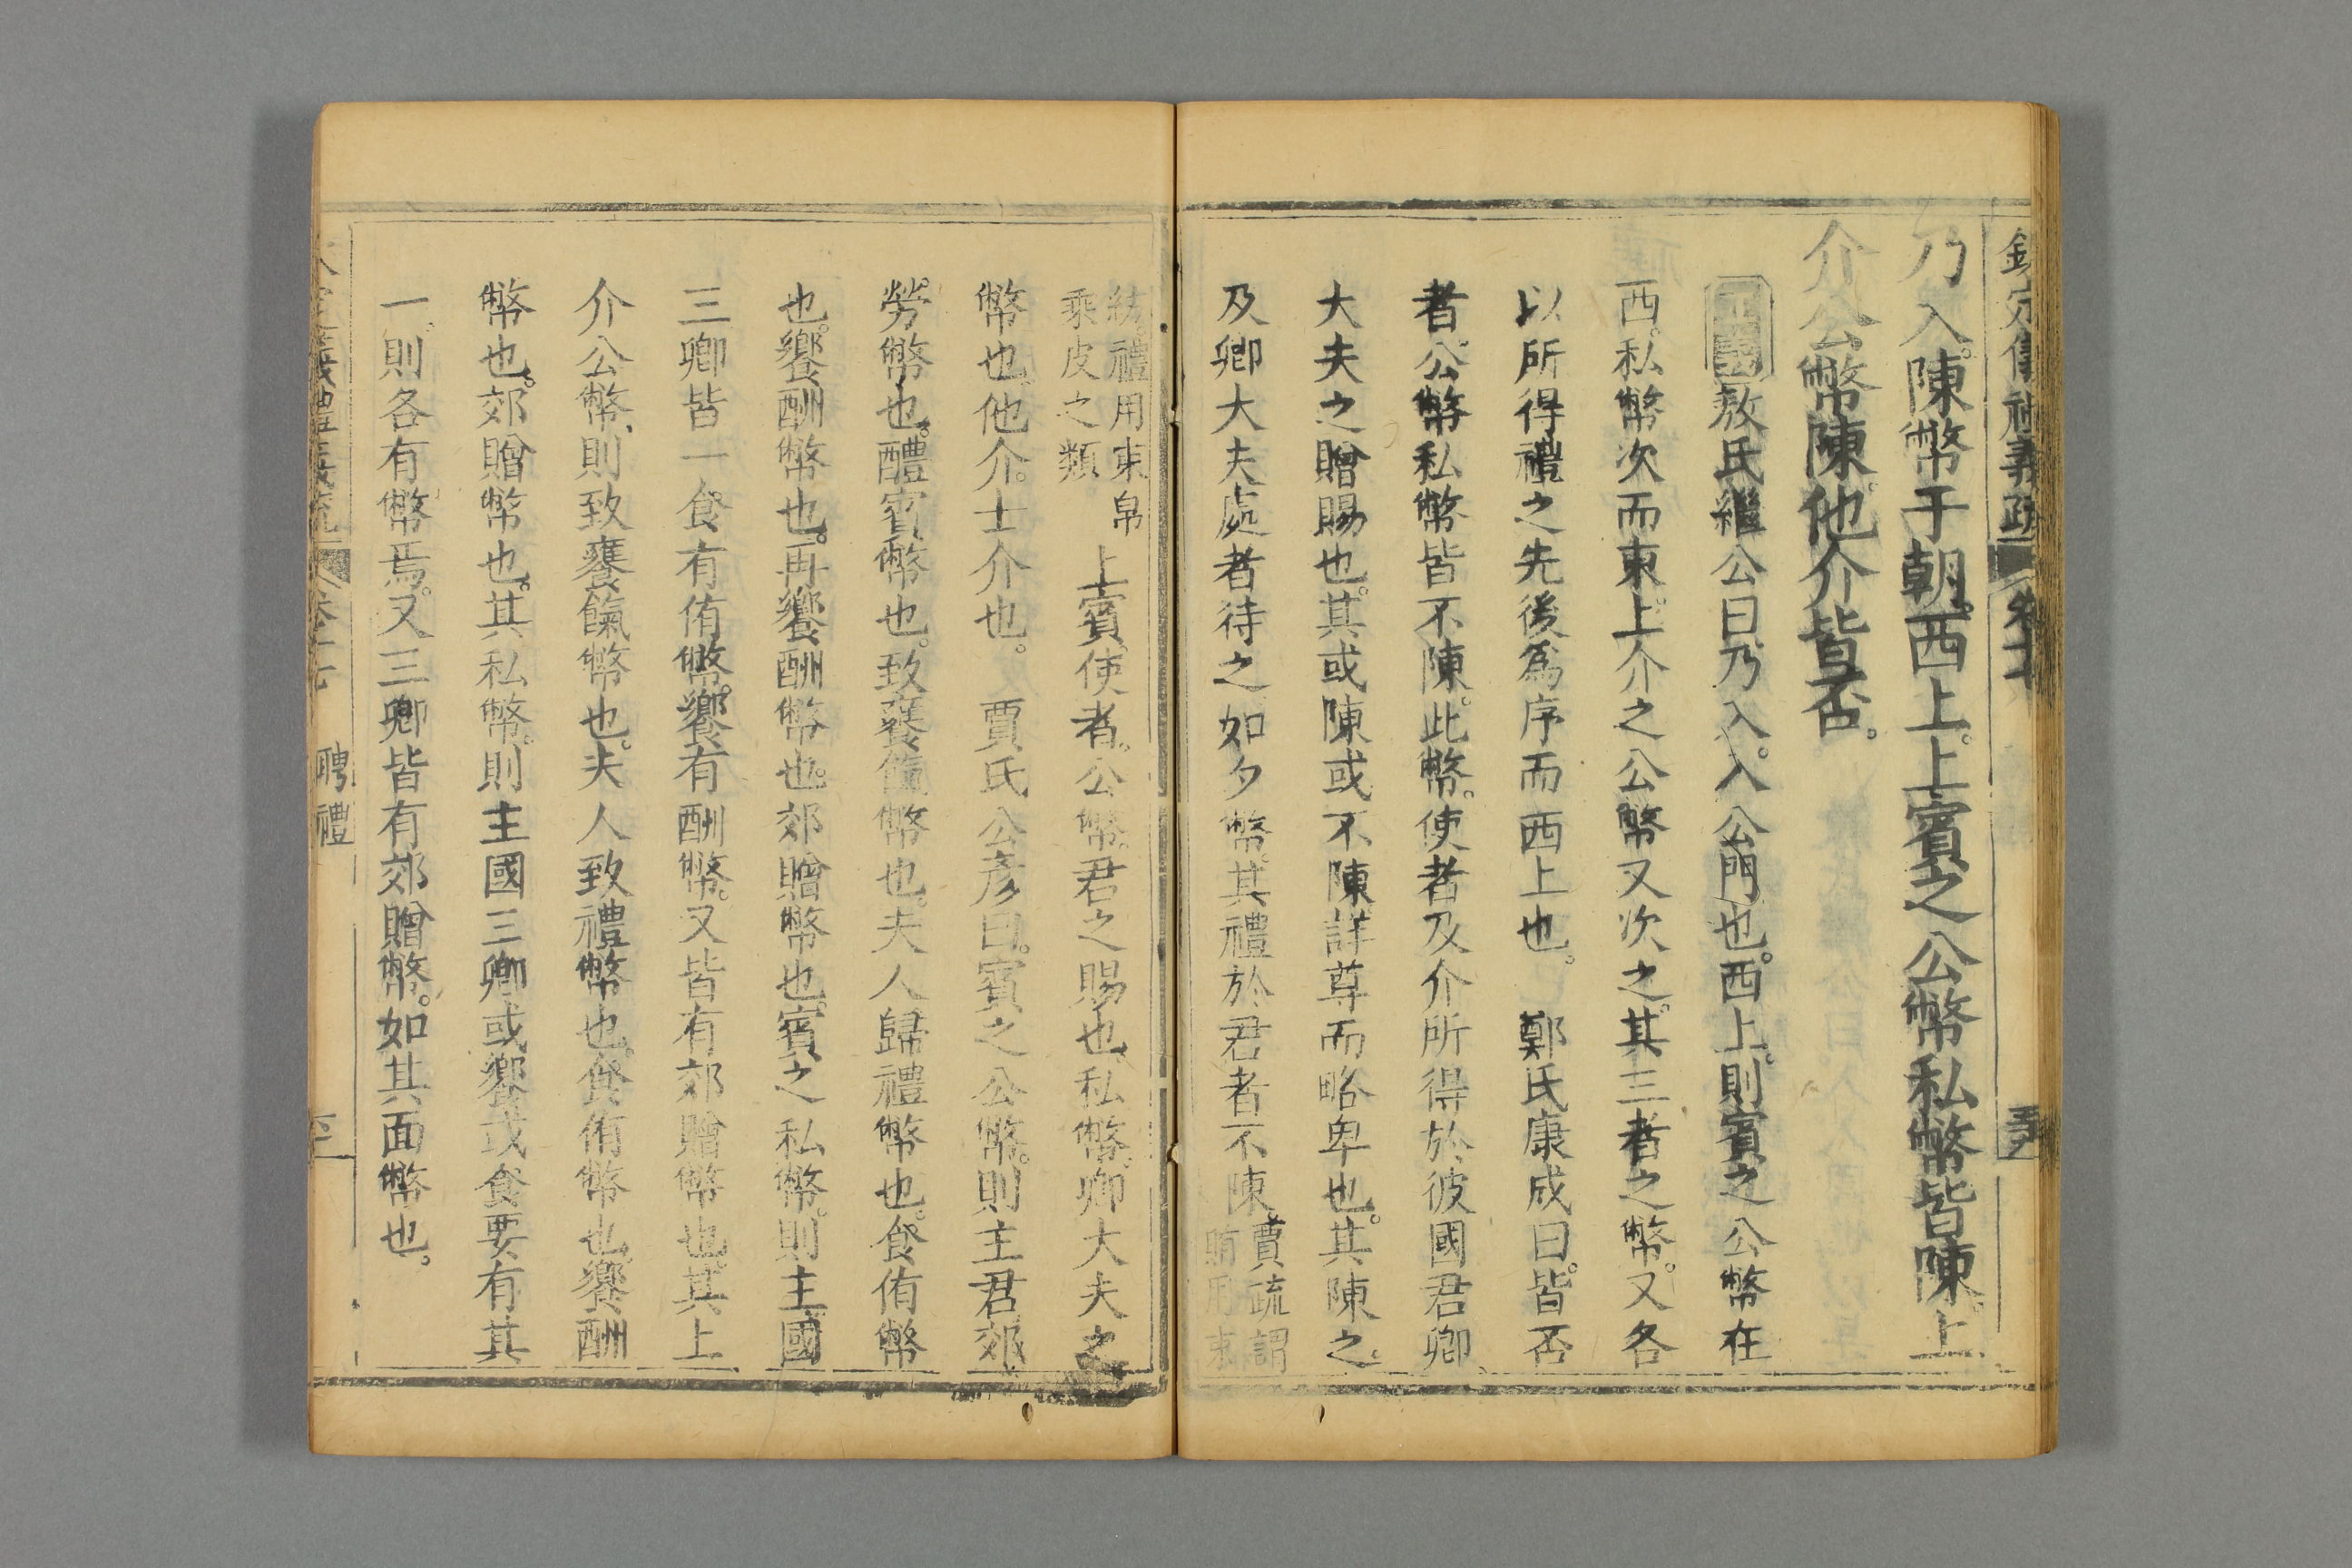 欽定儀禮義疏 卷十七
乃入陳幣于朝西上上賓之公幣私幣皆陳上
介公幣陳他介皆否。
正義敖氏繼公曰乃入。入公門也。西上。則賓之公幣在
西。私幣次而東。上介之公幣又次之。其三者之幣。又各
以所得禮之先後爲序而西上也。 鄭氏康成曰。皆否
者。公幣私幣皆不陳。此幣。使者及介所得於彼國君卿
大夫之贈賜也。其或陳或不陳。詳尊而略卑也。其陳之。
及卿大夫處者待之。如夕幣。其禮於君者不陳。賈疏謂
賄用束
紡。禮用束帛
乘皮之類 上賓使者。公幣。君之賜也。私幣。卿大夫之
幣也。他介。士介也。 賈氏公彥曰。賓之公幣。則主君郊
勞幣也。醴賓幣也。致饔餼幣也。夫人歸禮幣也。食侑幣
也。饗酬幣也。再饗酬幣也。郊贈幣也。賓之私幣。則主國
三卿皆一食。有侑幣。饗有酬幣。又皆有郊贈幣也。其上
介公幣。則致饔餼幣也。夫人致禮幣也。食侑幣也。饗酬
幣也。郊贈幣也。其私幣。則主國三卿或饗或食。要有其
一。則各有幣焉。又三卿皆有郊贈幣。如其面幣也。
義禮義疏 卷十七 聘禮